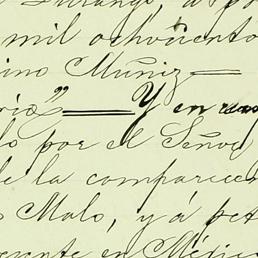 Durango, á po
mil ochociento
ino Muñiz—
ria"— Y en
lo por el Señor
de la comparecen
Malo, y á pet
en México